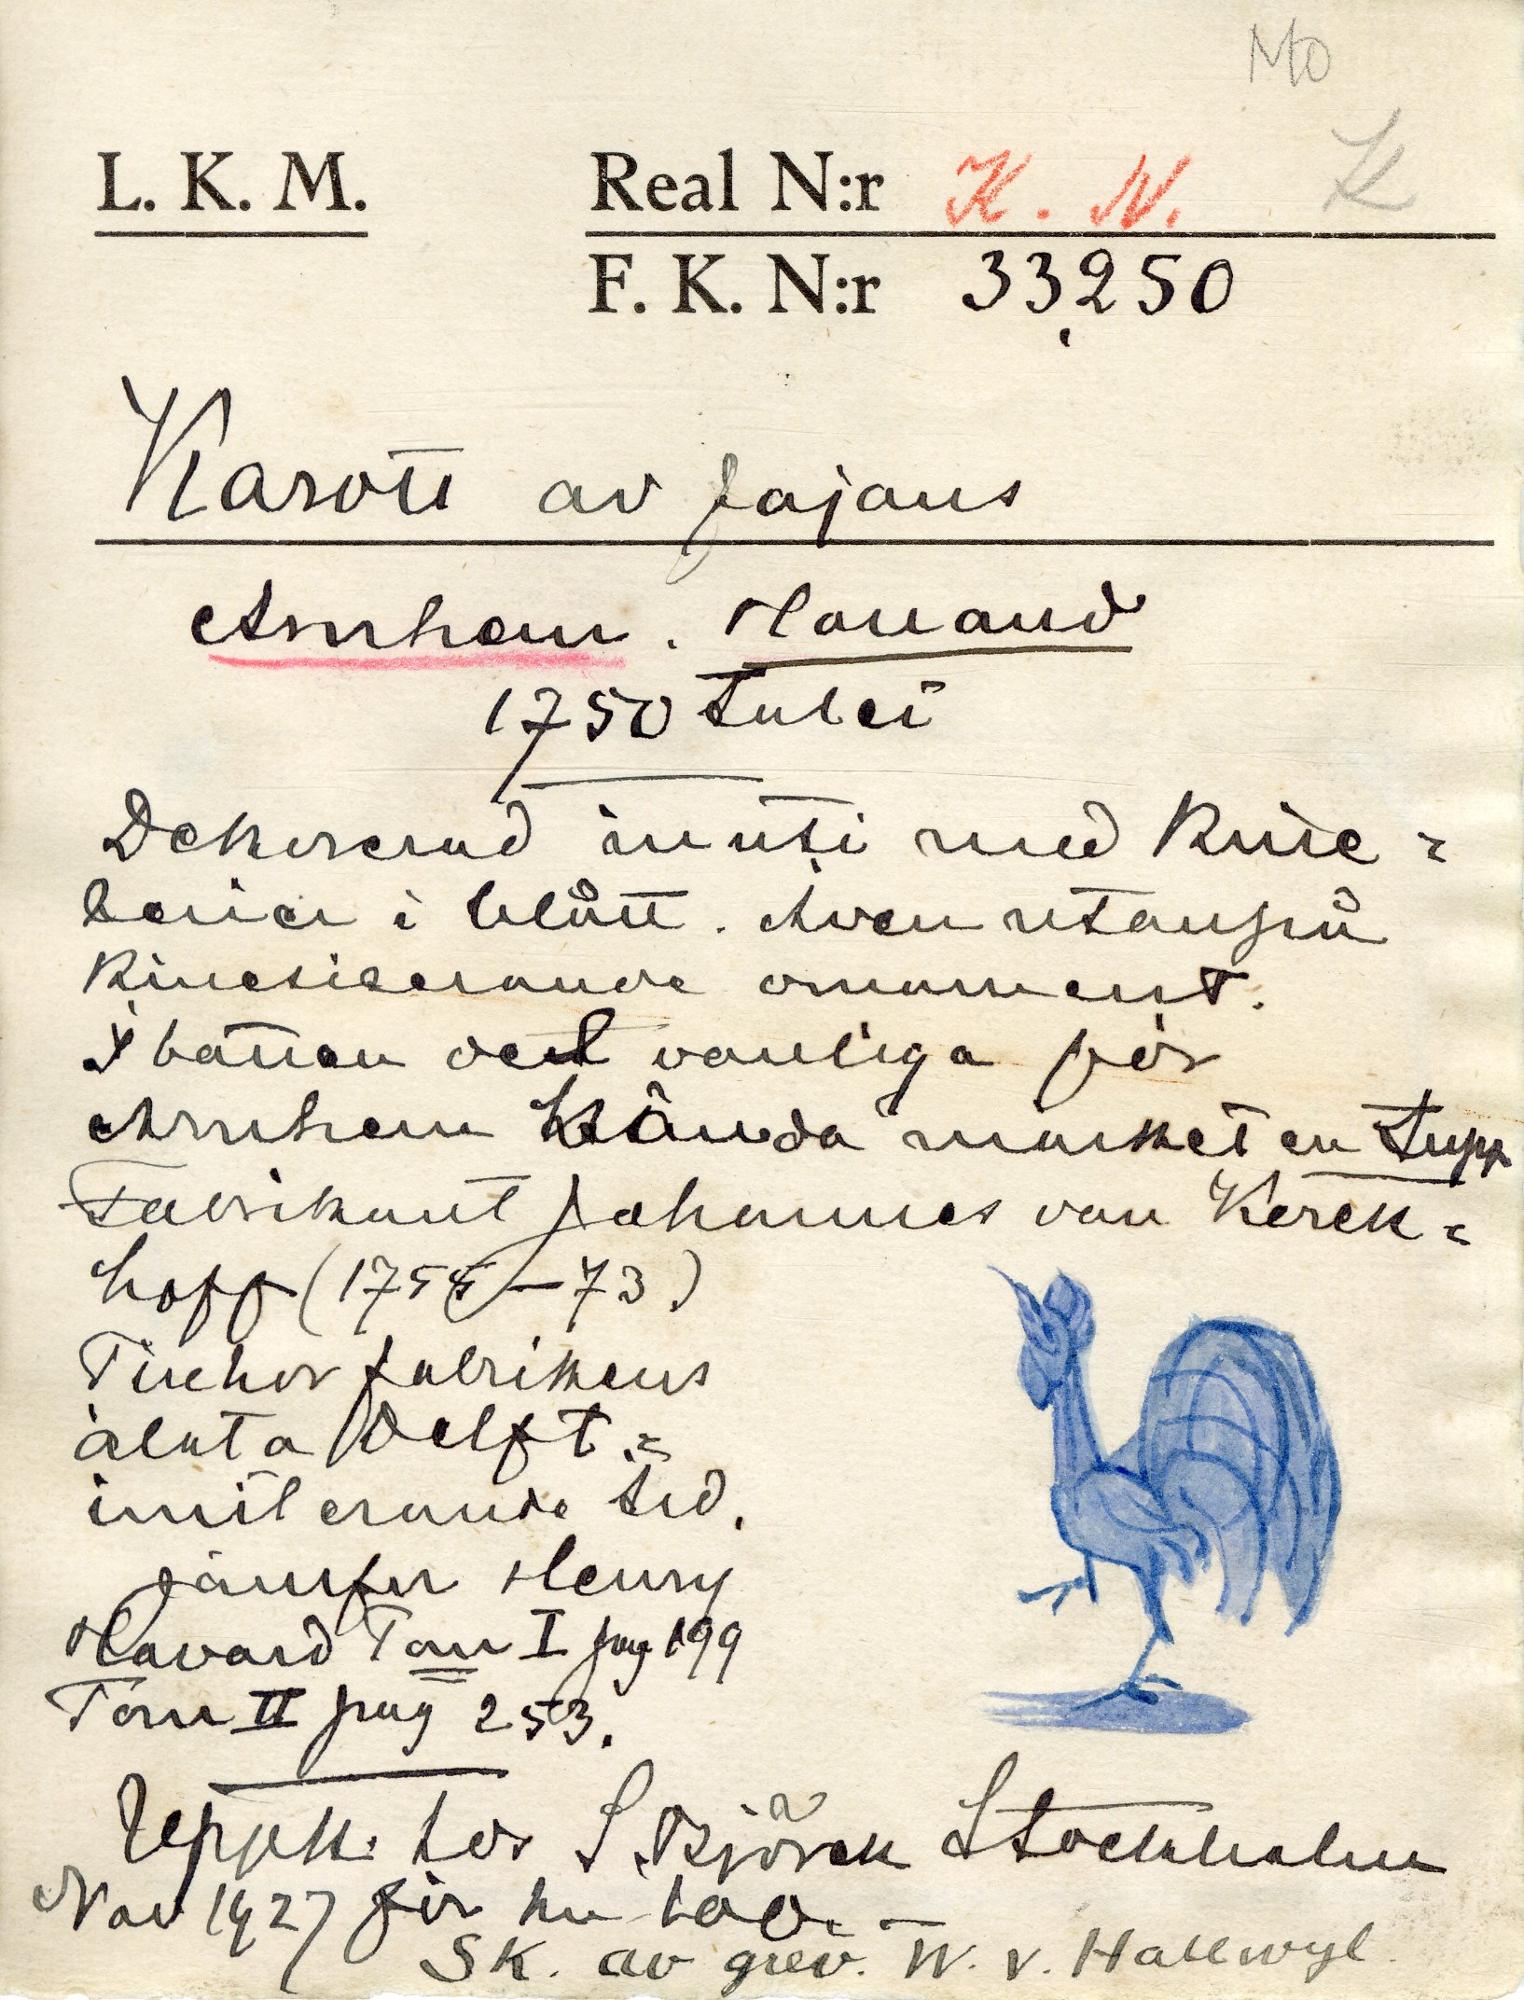 Mo
L. K. M. Real N:r K. N. K
F. K. N:r 33,250
Karott av fajans
Arnhem. Holland
1750 talet
Dekorerad inuti med kine=
serier i blått. Även utanpå
kinesiserande ornament.
I botten det vanliga för
Arnhem kända märket en tupp
Fabrikant Johannes van Kerck=
hoff (1755–73)
Tillhör fabrikens
älsta Delft=
imiterande tid.
Jämför Henry
Havard Tom I pag 199
Tom II pag 253.
Uppk. hos S. Björck Stockholm
Nov 1927 för kr
SK. av grev. W. v. Hallwyl.